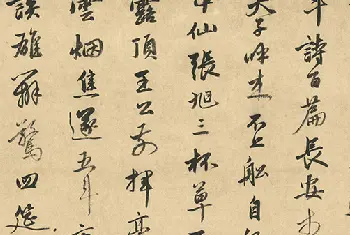 斗詩百篇長安市
天子呼来不上船自
中仙張旭三杯草
露頂王公前揮毫
雲烟焦遂五斗
談雄辯驚四筵